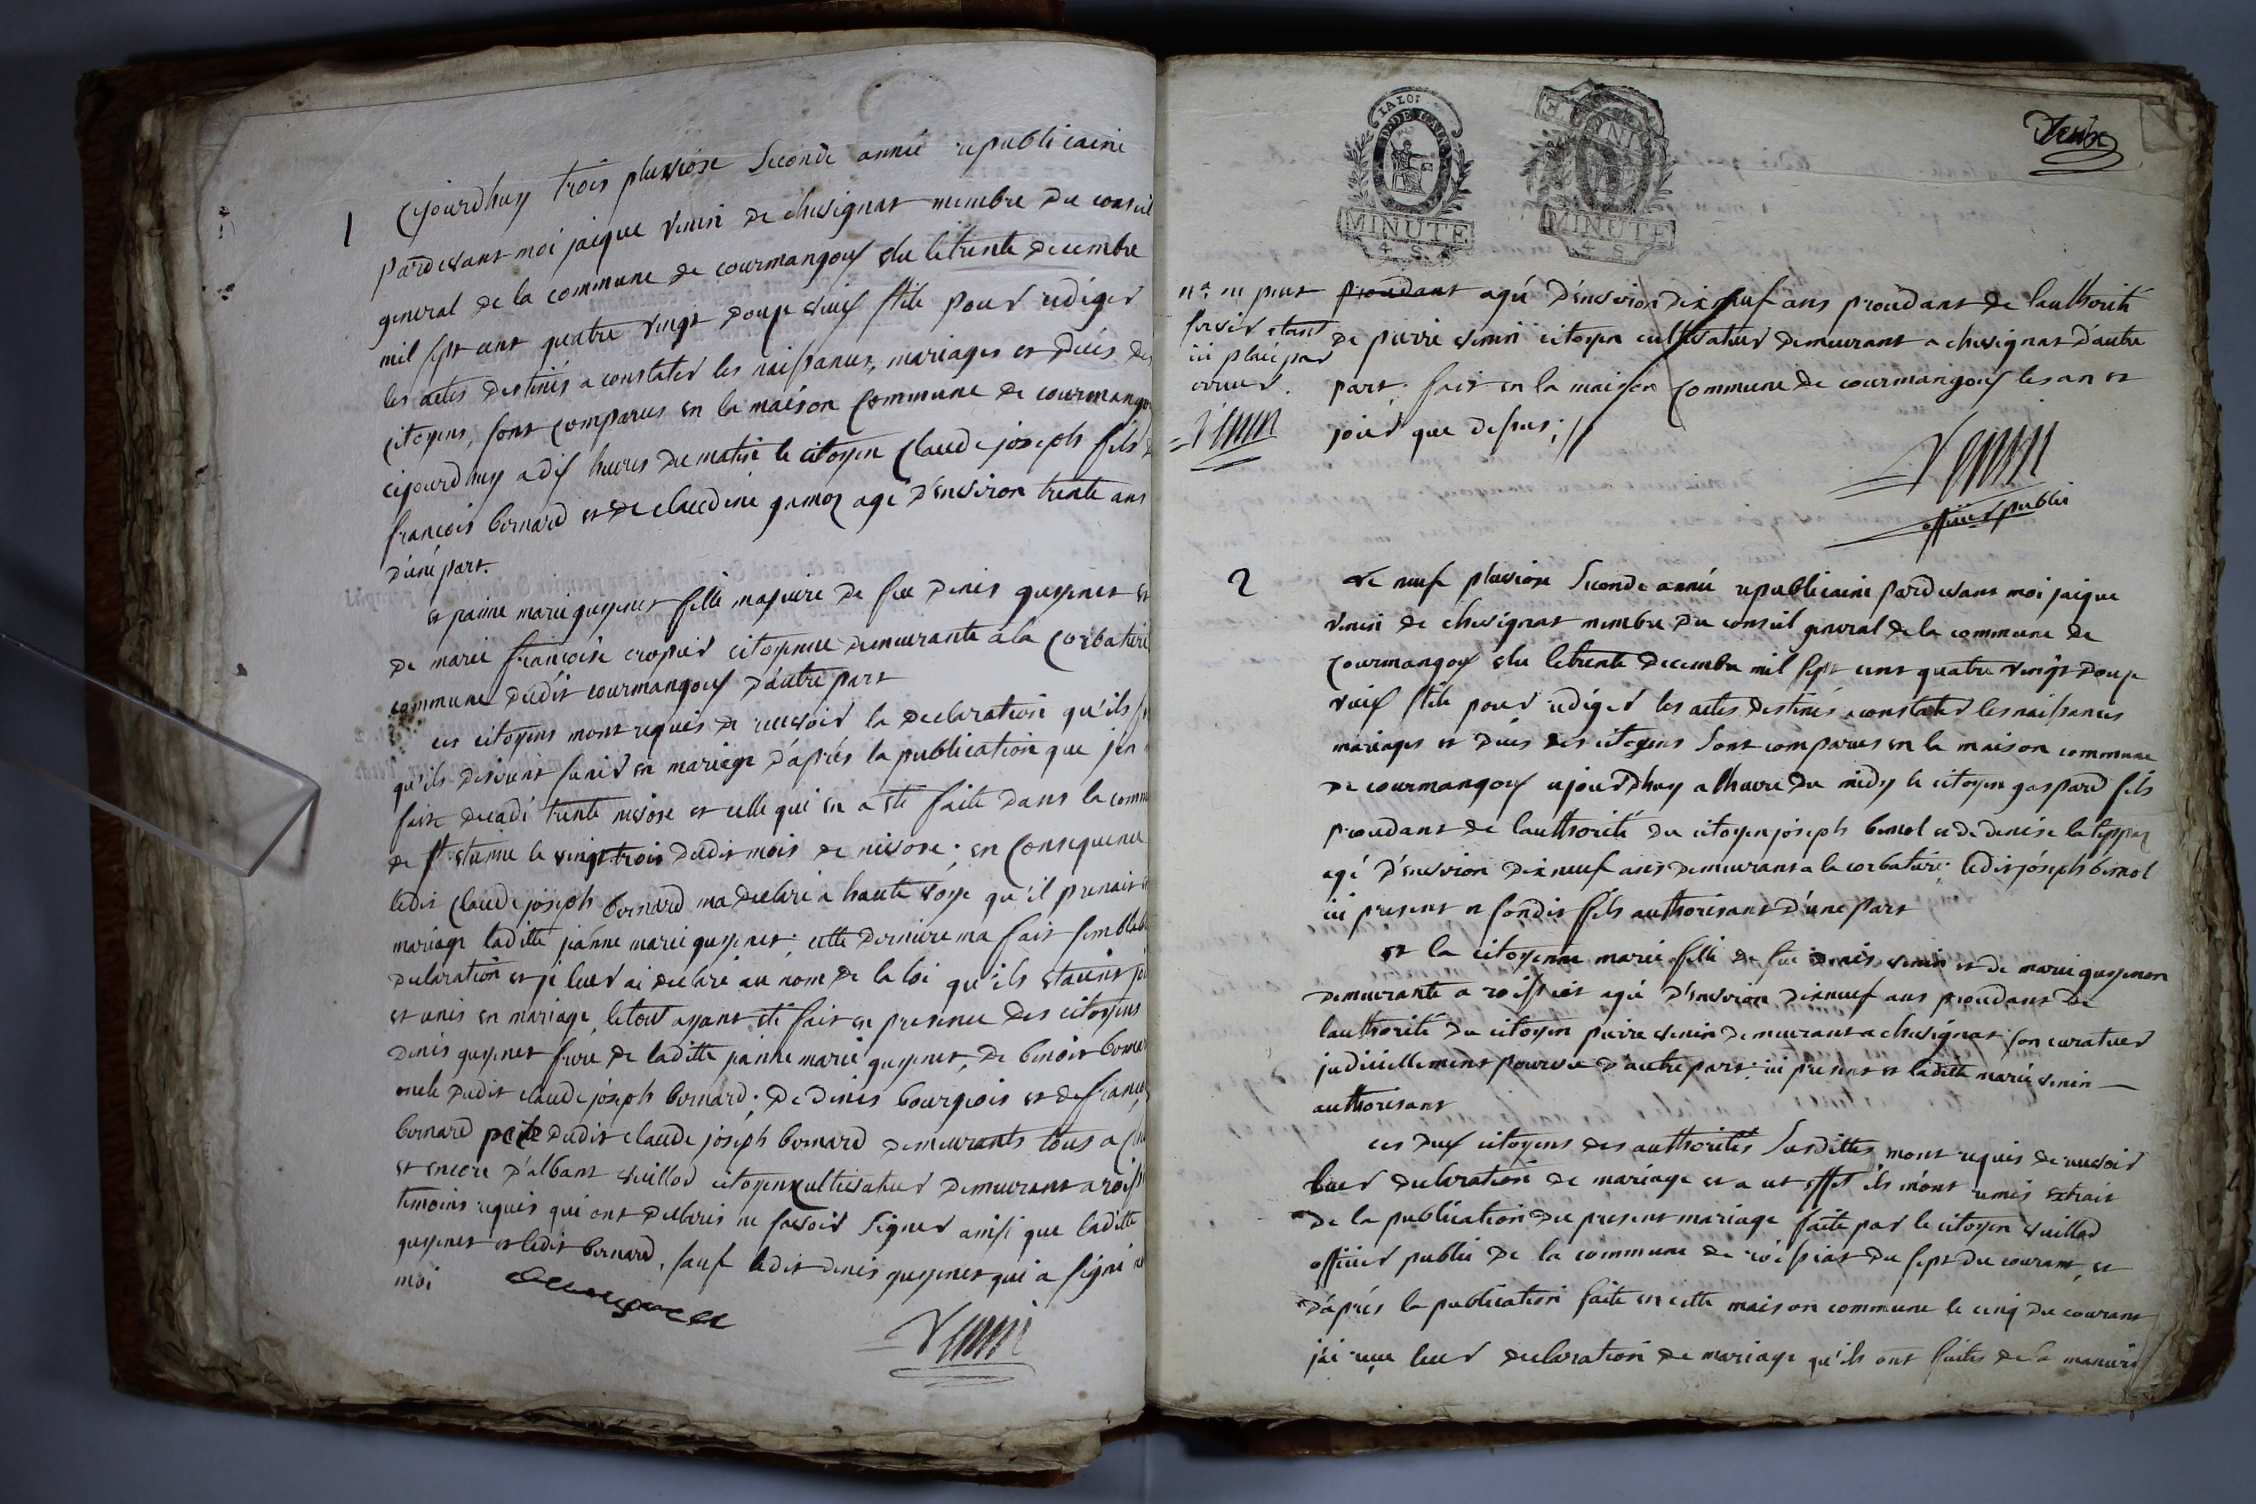 1
Cejourdhuy trois pluviose Seconde année republicaine
pardevant moi jacque venin de chevignat membre du conseil
general de la commune de courmangoux elu le trente decembre
mil sept cent quatre vingt douze vieux stile pour rediger
les actes destinés a constater les naissances, mariages et décès des
citoyens, sont comparus en la maison Commune de courmangoux
cejourdhuy a dix heures du matin le citoyen Claude joseph fils de
francois bernard et de claudine gamoz agé d'environ trente ans
d'une part.
et janne marie guyenet fille majeure de feu denis guyenet et
de marie francoise cropier citoyenne demeurante a la Corbatiere
commune dudit courmangoux d'autre part
ces citoyens mont requis de recevoir la declaration qu'ils
qu'ils desirent sunir en mariage d'aprés la publication que jen
fait decadi trente nivose et celle qui en a eté faite dans la commune
de st etienne le vingt trois dudit mois de nivose; en Consequence
ledit Claude joseph bernard ma declaré a haute voye qu'il prenait en
mariage laditte jeanne marie guyenet; cette derniere ma fait semblable
declaration et je leur ai declaré au nom de la loi qu'ils etaient
et unis en mariage, le tout ayant eté fait en presence des citoyens
denis guyenet frere de laditte janne marie guyenet, de benoit bernard
oncle dudit claude joseph bernard; de denis bourgeois et de francois
bernard pere dudit claude joseph bernard demeurants tous a
et encore d'albant vuillod citoyen cultivateur demeurant a roissiat
temoins requis qui ont declarés ne savoir signer ainsi que laditte
guyenet et ledit bernard, sauf ledit denis guyenet qui a signé avec
moi
Venin
LA LOI
MINUTE
4 S
MINUTE
4 S
nª ne peut
servir etant
ici placé par
erreur.
Venin
procedant agée d'environ dix neuf ans procedant de lauthorité
de pierre venin citoyen cultivateur demeurant a chevignat d'autre
part; fait en la maison Commune de courmangoux les an et
jour que dessus;
Venin
officier public
2
Le neuf pluviose Seconde année republicaine pardevant moi jacque
venin de chevignat membre du conseil general de la commune de
Courmangoux elu le trente decembre mil sept cent quatre vingt douze
vieux stile pour rediger les actes destinés a constater les naissances
mariages et décès des citoyens sont comparus en la maison commune
de courmangoux cejourdhuy a lheure du midy le citoyen gaspard fils
procedant de lauthorité du citoyen joseph benoit et de denise
agé d'environ dix neuf ans demeurant a la corbatiere; ledit joseph benoit
ici present et sondit fils authorisant d'une part
et la citoyenne marie fille de feu denis venin et de marie guyenon
demeurante a roissiat agée d'environ dix neuf ans procedant de
lauthorité du citoyen pierre venin demeurant a chevignat son curateur
judiciellement pourvu d'autre part; ici present et laditte marie venin
authorisant
ces deux citoyens des authorités susdittes mont requis de recevoir
leur declaration de mariage et a cet effet ils m'ont remis extrait
de la publication du present mariage faite par le citoyen vuillod
officier public de la commune de roissiat du sept du courant, et
d'aprés la publication faite en cette maison commune le cinq du courant
j'ai recu leur declaration de mariage qu'ils ont faites de la maniere